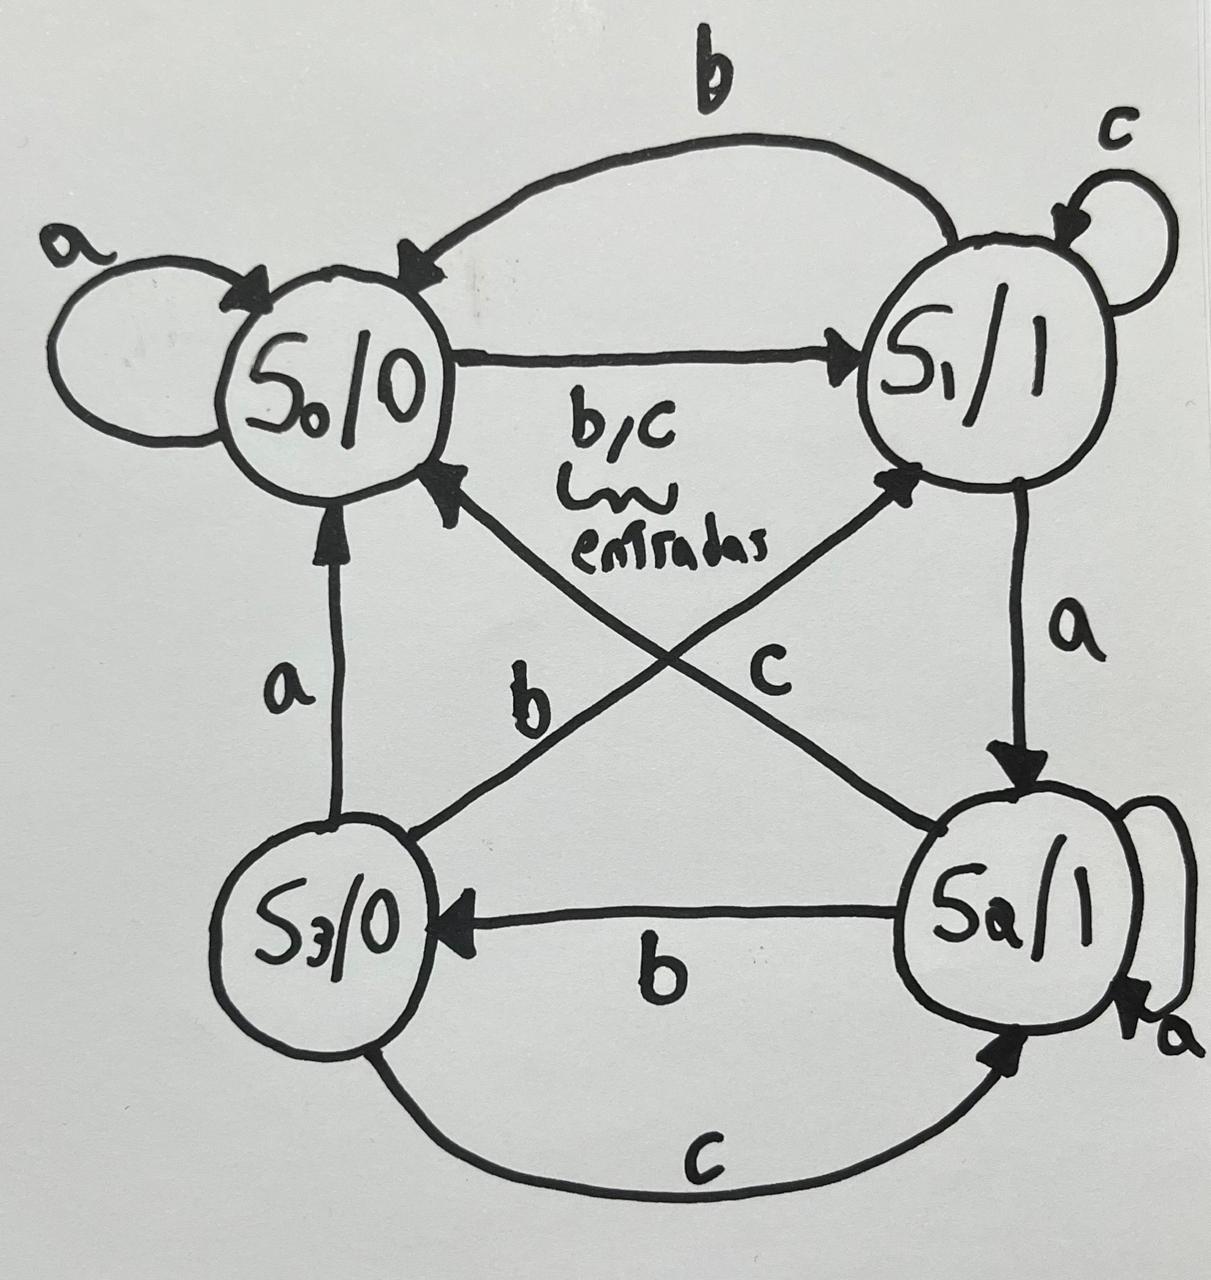 b
c
a
S₀/0
S₁/1
b,c
entradas
a
a
b
c
S₃/0
S₂/1
b
a
c